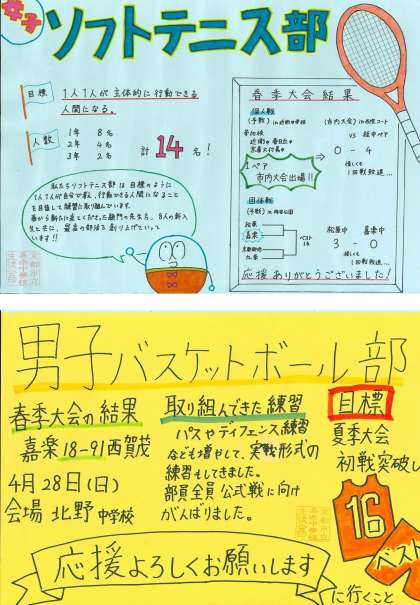 女子
ソフトテニス部
目標
1人1人が主体的に行動できる
人間になる。
人数
1年 8名
2年 4名
3年 2名
計 14名!
私たちソフトテニス部は目標のように
1人1人が自分で考え、行動できる人間になること
を目指して練習に取り組んでいます。
春から新たに着任してくださった顧問の先生方、8人の新入
生と共に、最高の部活を創り上げていって
います!!
春季大会結果
個人戦
(予戦)
(市内大会)
VS
0-4
1ペア
市内大会出場!!
惜しくも
1回戦敗退…
団体戦
(予戦)
嘉楽
ベスト
16
3-0
惜しくも
1回戦敗退…
応援ありがとうございました!
男子バスケットボール部
春季大会の結果
嘉楽18-91西賀茂
4月28日(日)
会場 北野中学校
取り組んできた練習
パスやディフェンス練習
なども増やして、実戦形式の
練習もしてきました。
部員全員公式戦に向け
がんばりました。
目標
夏季大会
初戦突破し
16
ベスト
に行くこと
応援よろしくお願いします